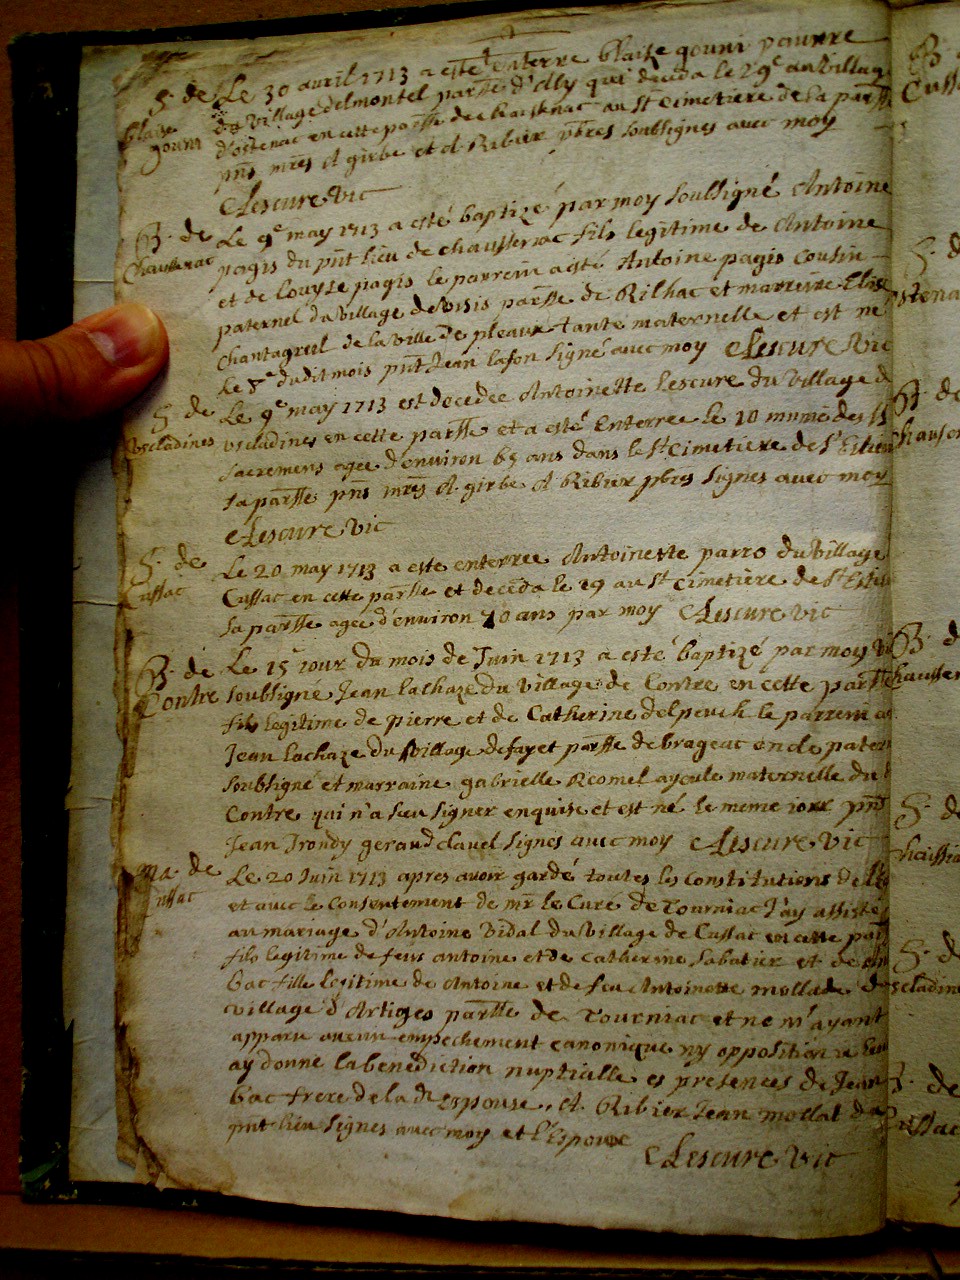 S. de Le 30 auril 1713 a este enterre blaize gouni pauure
blaise gouni du Village delmontel parsse d'Ally qui deceda le 29e au Village
d'ostenac en cette parsse de chaussenac au st Cimetiere de la parsse
pns mres A girbe et A Ribier pbres soubsignes auec moy
Lescure vic
B. de Le 9e may 1713 a esté baptizé par moy soussigné Antoine
Chaussenac pagis du pnt lieu de chaussenac fils legitime de Antoine
et de Louyse pagis le parrein a esté Antoine pagis Cousin
paternel du village de visis parsse de Rilhac et marreine Elise
Chantagreil de la Ville de pleaux tante maternelle et est né
le 7e dudit mois pnt Jean lafon signé auec moy Lescure Vic
S. de Le 9e may 1713 est decedée Antoinette Lescure du Village d
Vscladines vscladines en cette parsse et a esté Enterrée le 10 munie des ss
sacremens agee d'enuiron 65 ans dans le st Cimetiere de st Estien
sa parsse pns mres A girbe A Ribier pbres signes auec moy
Lescure vic
S. de Le 20 may 1713 a este enterree Antoinette parro du Village
Cussac Cussac en cette parsse et deceda le 19 au st Cimetiere de st Estie
sa parsse agee d'enuiron 70 ans par moy Lescure vic
B. de Le 15e iour du mois de Juin 1713 a esté baptizé par moy vi
Contre soubsigné Jean lachaze du Village de Contre en cette parsse
fils legitime de pierre et de Catherine delpeuch le parrein a
Jean lachaze du Village defayet parsse de brageac oncle pater
soubsigné et marraine gabrielle Reomel ayeule maternelle du
Contre qui n'a sceu signer enquise et est né le meme iour pns
Jean Trondy geraud clauel signes auec moy Lescure vic
Ma. de Le 20 Juin 1713 apres auoir gardé toutes les Constitutions de l
Cussac et auec le Consentement de mr le Curé de Tourniac J'ay assisté
au mariage d'Antoine Vidal du Village de Cussac en cette par
fils legitime de feus antoine et de Catherine Sabatier et de
bac fille legitime de Antoine et de feu Antoinette mollade d
village d'Artiges parsse de Tourniac et ne m'ayant
apparu aucun empechement canonique ny opposition ie leur
ay donné la benediction nuptialle es presences de Jean
bac frere de la de Espouse, A. Ribier Jean mollat du
pnt lieu signes auec moy et l'Espoux
Lescure vic